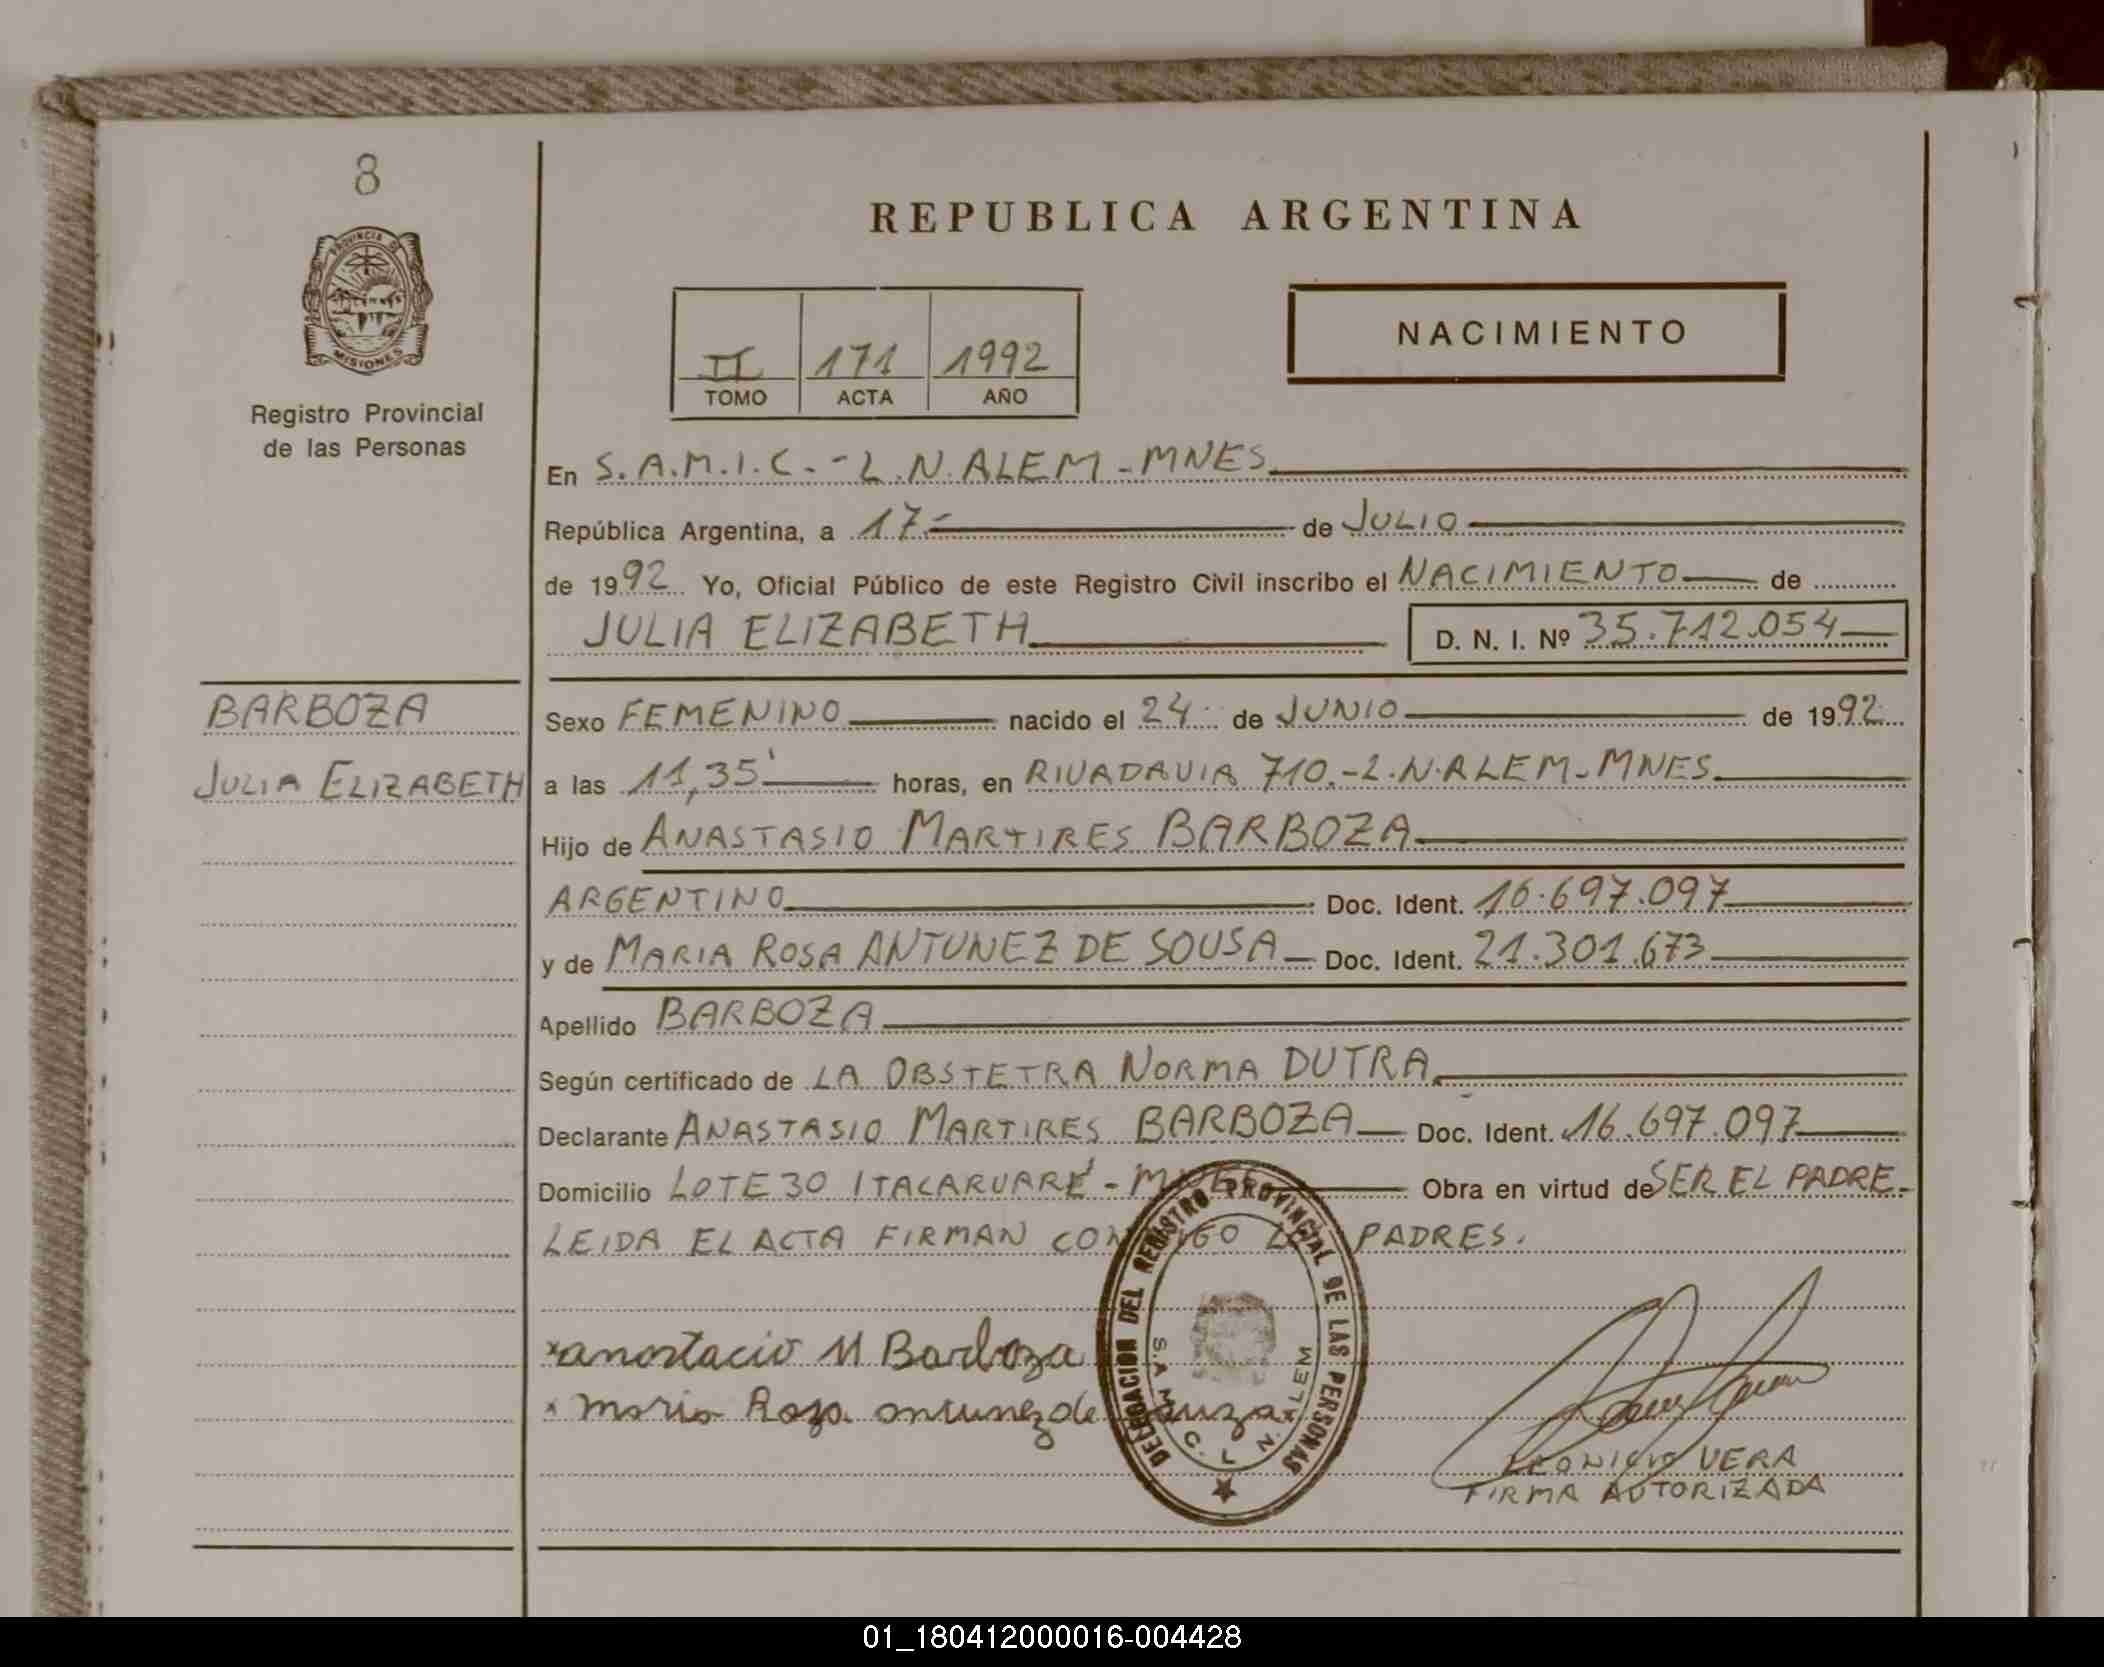 8
PROVINCIA D
MISIONES
Registro Provincial
de las Personas
BARBOZA
JULIA ELIZABETH
REPUBLICA ARGENTINA
II 171 1992
TOMO ACTA AÑO
NACIMIENTO
En S.A.M.I.C.-L.N.ALEM-MNES
República Argentina, a 17- de JULIO
de 1992 Yo, Oficial Público de este Registro Civil inscribo el NACIMIENTO de
JULIA ELIZABETH D. N. I. Nº 35.712.054
Sexo FEMENINO nacido el 24 de JUNIO de 1992
a las 11,35' horas, en RIVADAVIA 710.-L.N.ALEM-MNES
Hijo de ANASTASIO MARTIRES BARBOZA
ARGENTINO Doc. Ident. 16.697.097
y de MARIA ROSA ANTUNEZ DE SOUSA Doc. Ident. 21.301.673
Apellido BARBOZA
Según certificado de LA OBSTETRA NORMA DUTRA
Declarante ANASTASIO MARTIRES BARBOZA Doc. Ident. 16.697.097
Domicilio LOTE 30 ITACARUARÉ - MNES Obra en virtud de SER EL PADRE.
LEIDA EL ACTA FIRMAN CONMIGO LOS PADRES.
DELEGACION DEL REGISTRO PROVINCIAL DE LAS PERSONAS
S.A.M.I.C. L. N. ALEM
x anastacio M Barboza
x Maria Rosa antunez de Souza
LEONICIO VERA
FIRMA AUTORIZADA
01_180412000016-004428